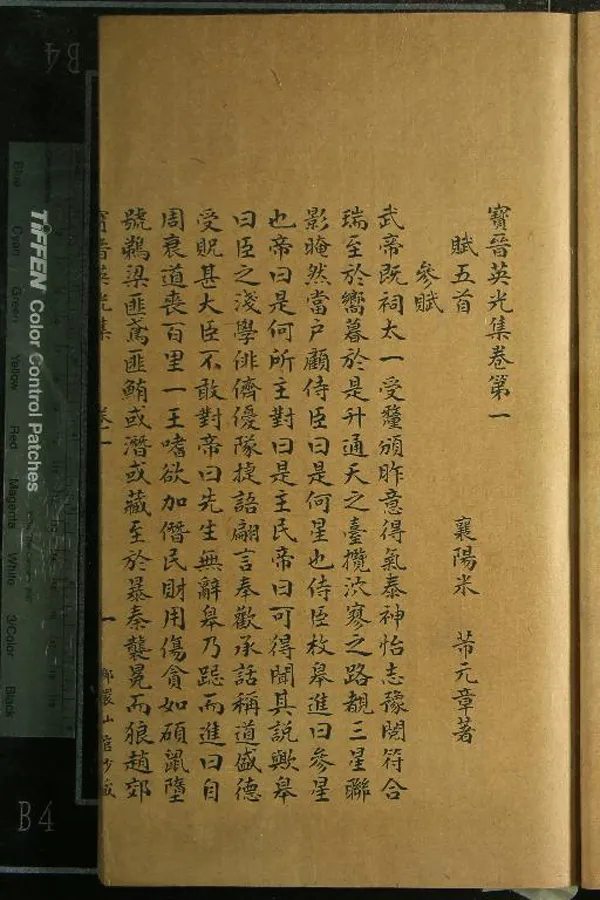 寶晉英光集卷第一
襄陽米 芾元章著
賦五首
參賦
武帝既祠太一受釐頒胙意得氣泰神怡志豫閱符合
瑞至於嚮暮於是升通天之臺攬泬寥之路覩三星聯
影晻然當戶顧侍臣曰是何星也侍臣枚皋進曰參星
也帝曰是何所主對曰是主民帝曰可得聞其説歟皋
曰臣之淺學俳儕優隊捷語翩言奉歡承話稱道盛德
受貺甚大臣不敢對帝曰先生無辭皋乃跽而進曰自
周衰道喪百里一王嗜欲加僭民財用傷貪如碩鼠墮
號鵜梁匪鳶匪鮪或潛或藏至於暴秦龑冕而狼趙郊
寶晉英光集 卷一 一
B4
TIFFEN Color Control Patches
Blue Cyan Green Yellow Red Magenta White 3/Color Black
B4